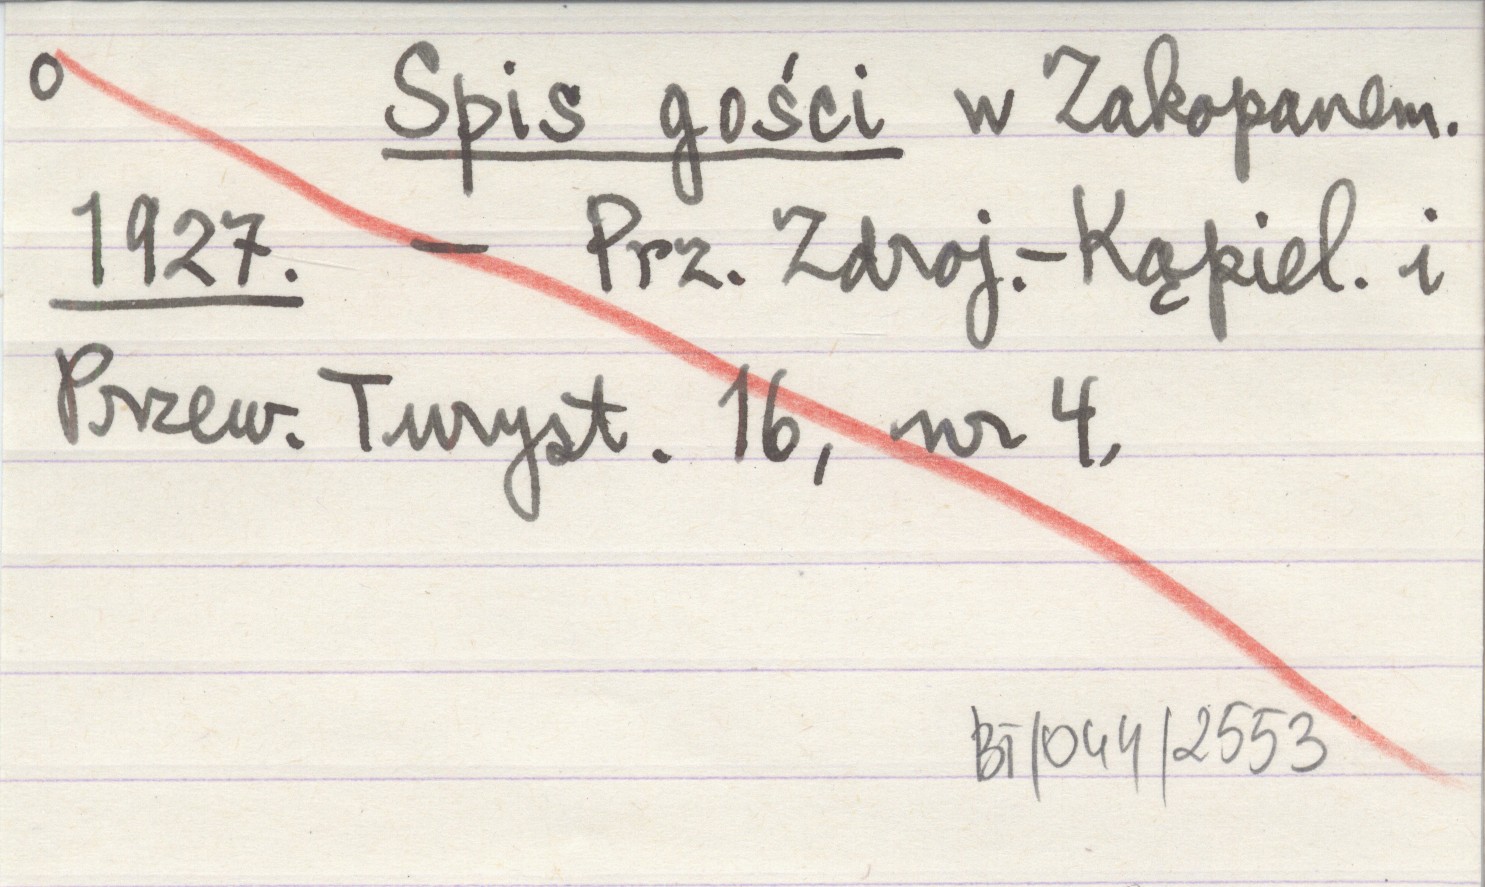 o Spis gości w Zakopanem.
1927. – Prz. Zdroj.-Kąpiel. i
Przew. Turyst. 16, nr 4.
BT/044/2553